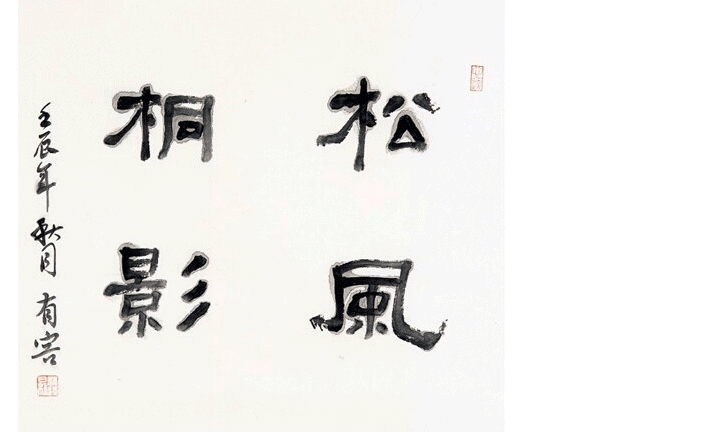 松風
桐影
壬辰年秋月有容